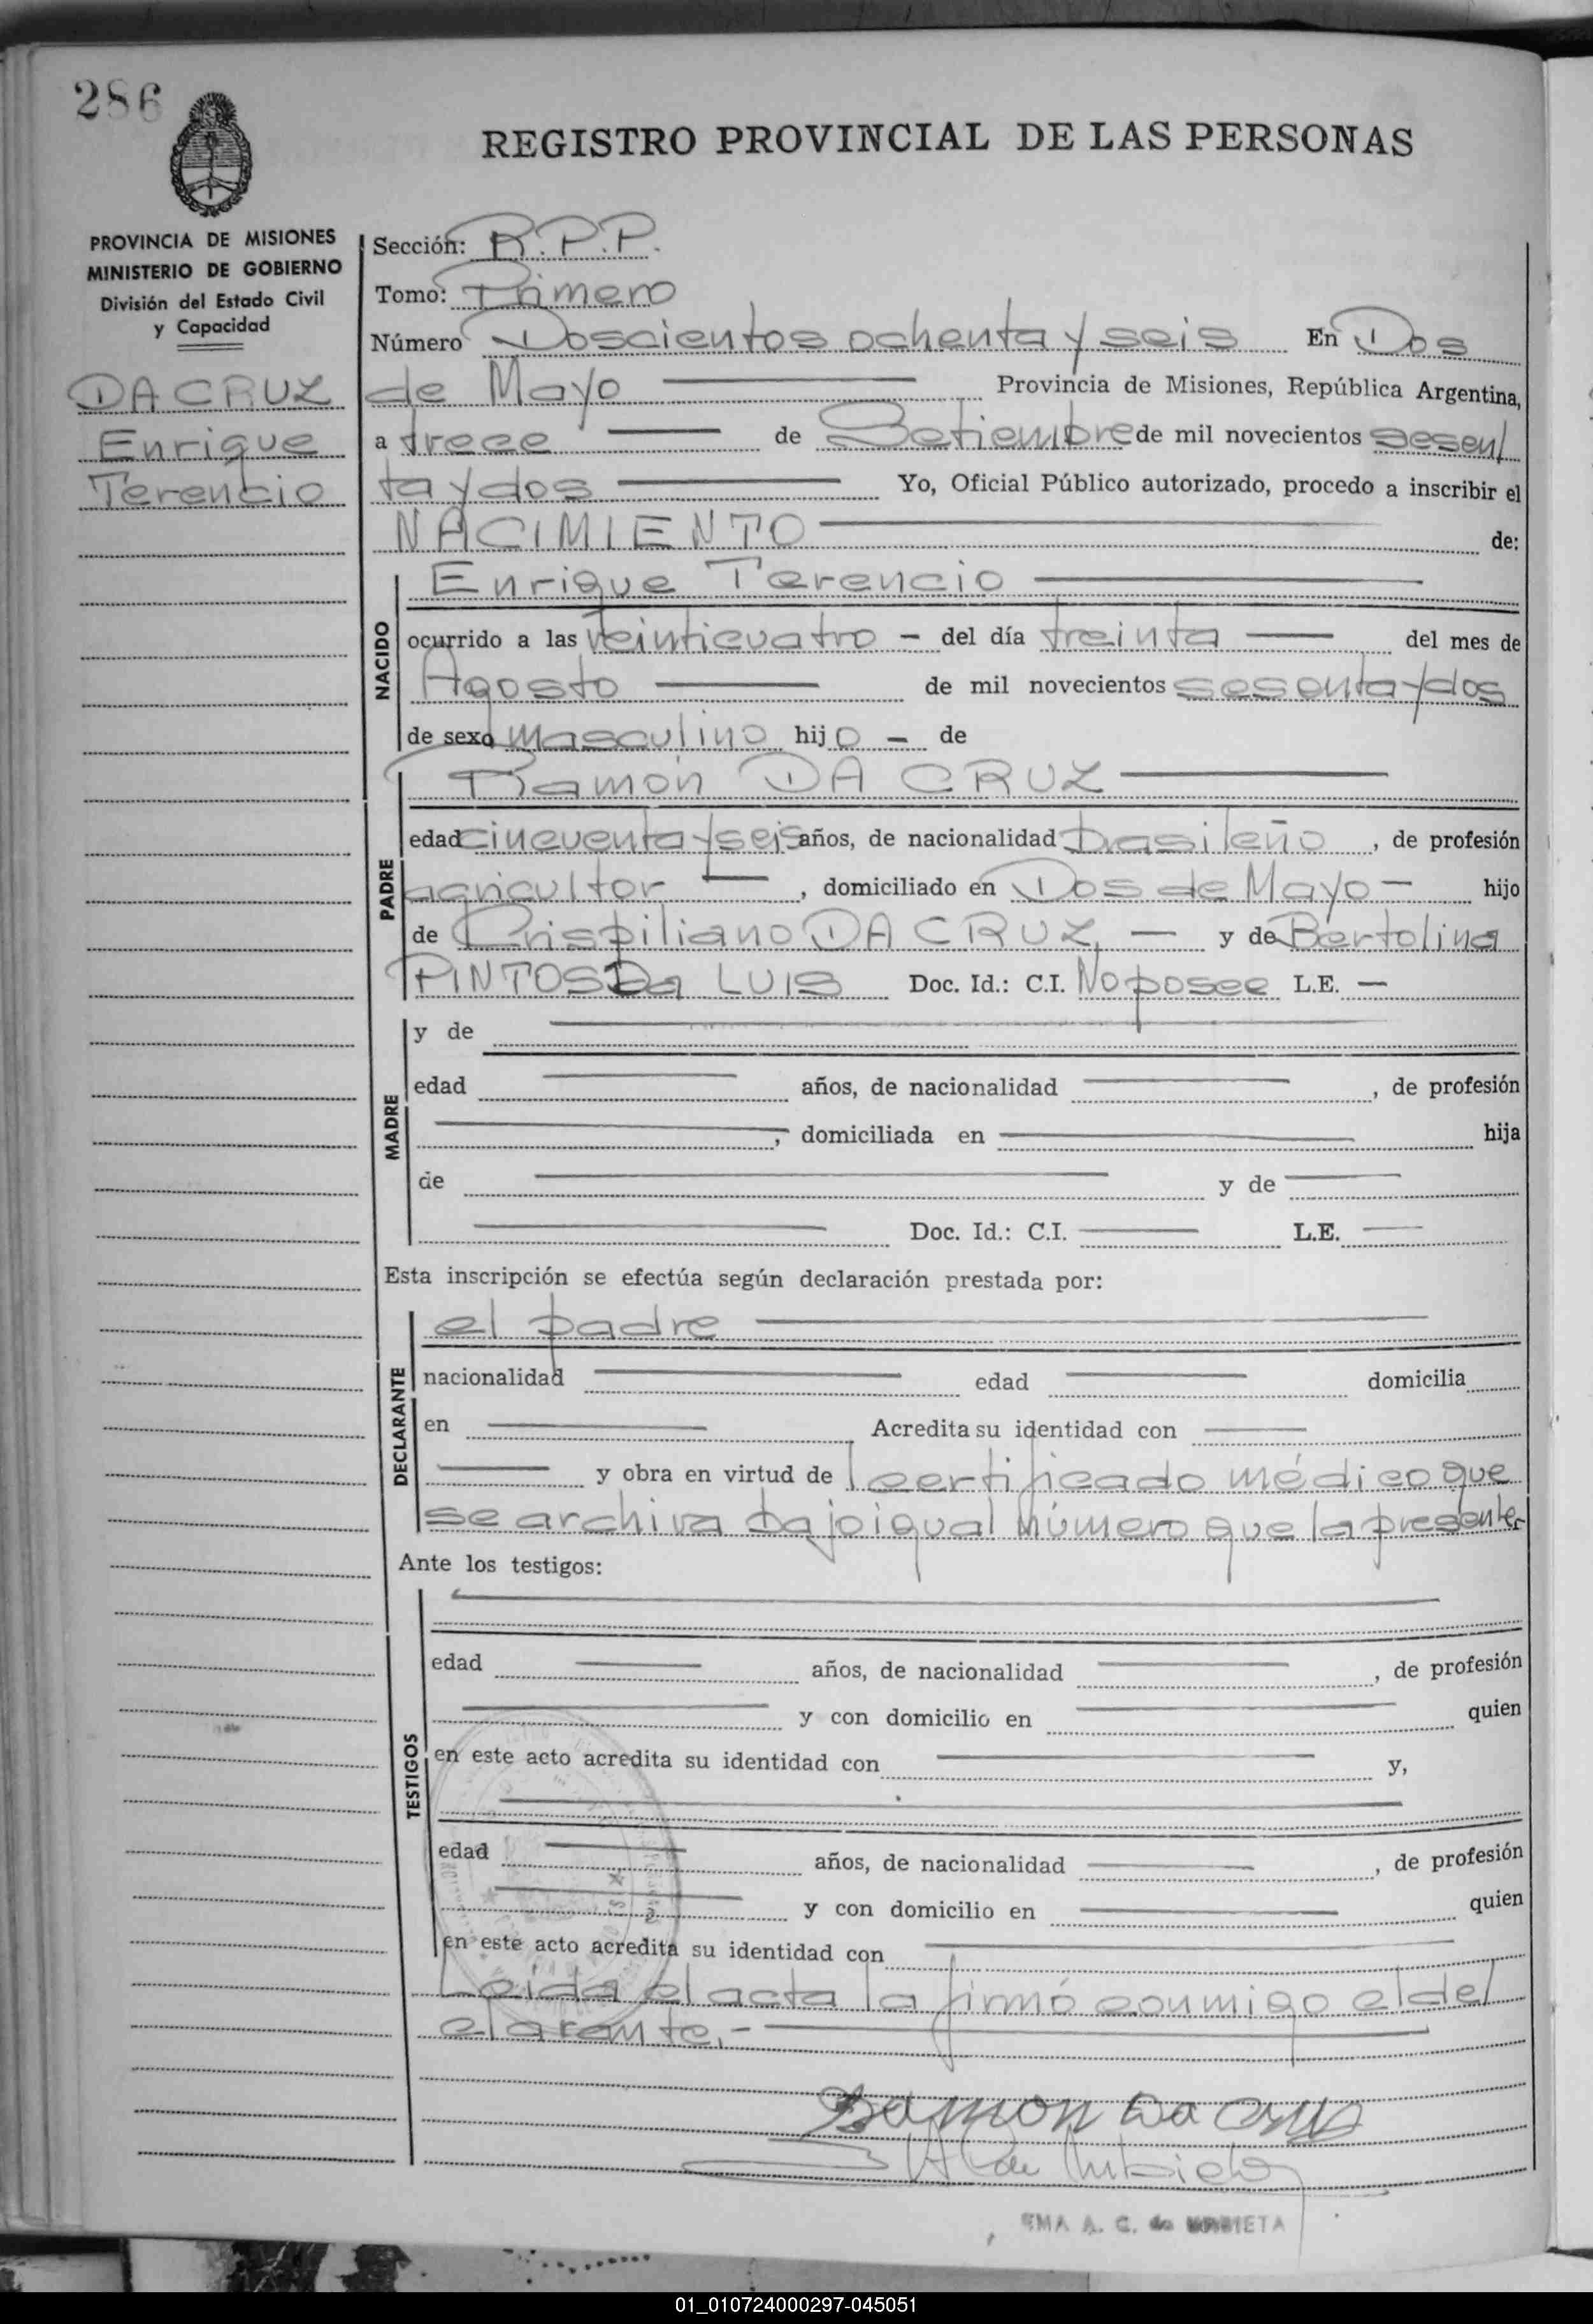 286
REGISTRO PROVINCIAL DE LAS PERSONAS
PROVINCIA DE MISIONES
MINISTERIO DE GOBIERNO
División del Estado Civil
y Capacidad
DA CRUZ
Enrique
Terencio
Sección: R.P.P.
Tomo: Primero
Número Doscientos ochenta y seis En Dos
de Mayo Provincia de Misiones, República Argentina,
a trece de Setiembre de mil novecientos sesen/
ta y dos Yo, Oficial Público autorizado, procedo a inscribir el
NACIMIENTO de:
NACIDO
Enrique Terencio
ocurrido a las veinticuatro – del día treinta del mes de
Agosto de mil novecientos sesenta y dos
de sexo masculino hijo – de
PADRE
Ramón DA CRUZ
edad cincuenta y seis años, de nacionalidad brasileño, de profesión
agricultor, domiciliado en Dos de Mayo – hijo
de Crispiliano DA CRUZ, – y de Bertolina
PINTOS Da LUIS Doc. Id.: C.I. No posee L.E. –
MADRE
y de
edad años, de nacionalidad , de profesión
, domiciliada en hija
de y de
Doc. Id.: C.I. L.E.
Esta inscripción se efectúa según declaración prestada por:
DECLARANTE
el padre
nacionalidad edad domicilia
en Acredita su identidad con
y obra en virtud de certificado médico que
se archiva bajo igual número que la presente
Ante los testigos:
TESTIGOS
edad años, de nacionalidad , de profesión
y con domicilio en quien
en este acto acredita su identidad con y,
edad años, de nacionalidad , de profesión
y con domicilio en quien
en este acto acredita su identidad con
Leida el acta la firmó conmigo el de/
clarante.-
Ramon Da Crus
A. C. de
01_010724000297-045051